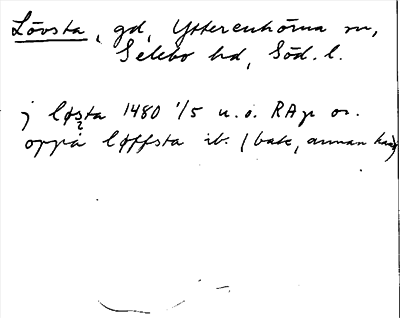 Lövsta, gd, Ytterenhörna sn,
Selebo hd, Söd. l.
j løsta 1480 1/5 u.o. RAp or.
oppa løffsta ib. (bak, annan hand)